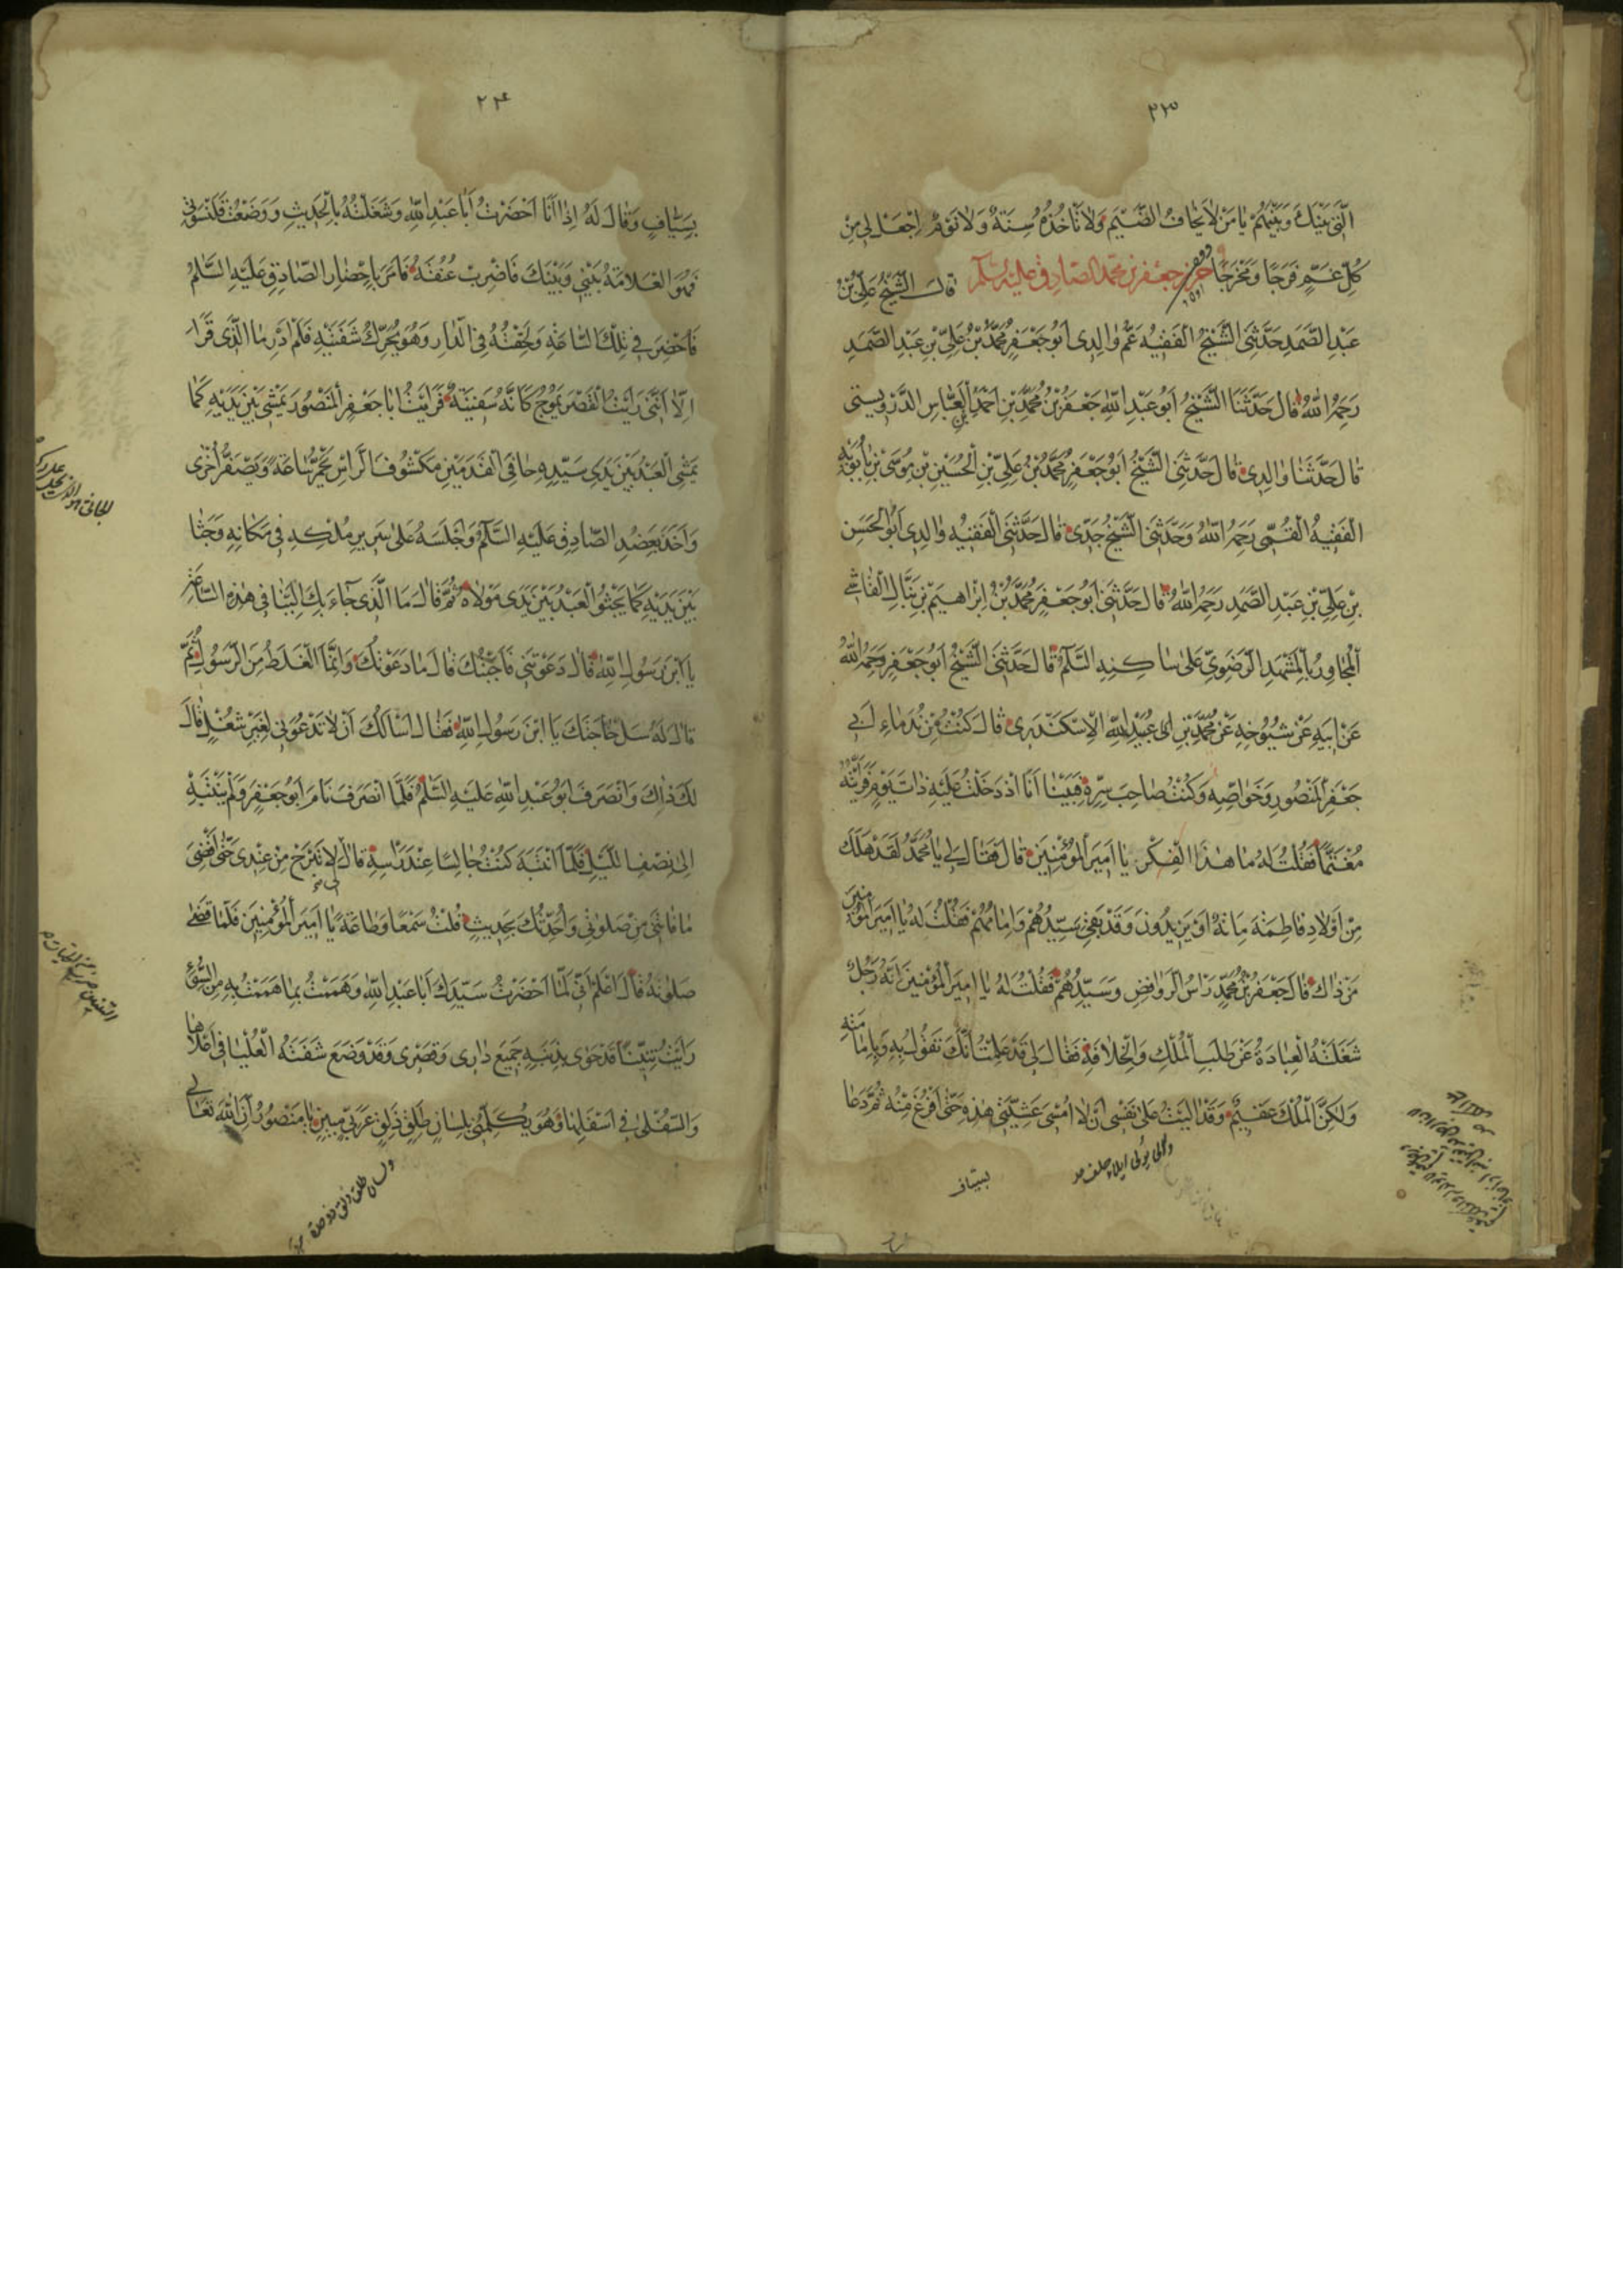 ٢٢٣
الَّتِي بَيْنَكَ وَبَيْنَهُمْ يَا مَنْ لَا يَخَافُ الضَّيْمَ وَلَا تَأْخُذُهُ سِنَةٌ وَلَا نَوْمٌ اِجْعَلْ لِي مِنْ
كُلِّ غَمٍّ فَرَجًا وَمَخْرَجًا حرز جعفر بن محمد الصادق عليه السلام قَالَ الشَّيْخُ عَلِيُّ بْنُ
عَبْدِ الصَّمَدِ حَدَّثَنِي الشَّيْخُ الْفَقِيهُ عَمُّ وَالِدِي أَبُو جَعْفَرٍ مُحَمَّدُ بْنُ عَلِيِّ بْنِ عَبْدِ الصَّمَدِ
رَحِمَهُ اللهُ قَالَ حَدَّثَنَا الشَّيْخُ أَبُو عَبْدِ اللهِ جَعْفَرُ بْنُ مُحَمَّدِ بْنِ أَحْمَدَ بْنِ الْعَبَّاسِ الدُّرْوِيسْتِي
قَالَ حَدَّثَنَا وَالِدِي قَالَ حَدَّثَنِي الشَّيْخُ أَبُو جَعْفَرٍ مُحَمَّدُ بْنُ عَلِيِّ بْنِ الْحُسَيْنِ بْنِ مُوسَى بْنِ بَابَوَيْهِ
الْفَقِيهُ الْقُمِّي رَحِمَهُ اللهُ وَحَدَّثَنِي الشَّيْخُ جَدِّي قَالَ حَدَّثَنِي الْفَقِيهُ وَالِدِي أَبُو الْحَسَنِ
بْنُ عَلِيِّ بْنِ عَبْدِ الصَّمَدِ رَحِمَهُ اللهُ قَالَ حَدَّثَنِي أَبُو جَعْفَرٍ مُحَمَّدُ بْنُ إِبْرَاهِيمَ بْنِ نَبَّالٍ الْقَاشِي
الْمُجَاوِرُ بِالْمَشْهَدِ الرَّضَوِيِّ عَلَى سَاكِنِهِ السَّلَامُ قَالَ حَدَّثَنِي الشَّيْخُ أَبُو جَعْفَرٍ رَحِمَهُ اللهُ
عَنْ أَبِيهِ عَنْ شُيُوخِهِ عَنْ مُحَمَّدِ بْنِ عُبَيْدِ اللهِ الْإِسْكَنْدَرِي قَالَ كُنْتُ مِنْ نُدَمَاءِ أَبِي
جَعْفَرٍ الْمَنْصُورِ وَخَوَاصِّهِ وَكُنْتُ صَاحِبَ سِرِّهِ فَبَيْنَا أَنَا إِذْ دَخَلْتُ عَلَيْهِ ذَاتَ يَوْمٍ فَرَأَيْتُهُ
مُغْتَمًّا فَقُلْتُ لَهُ مَا هَذَا الْفِكْرُ يَا أَمِيرَ الْمُؤْمِنِينَ قَالَ فَقَالَ لِي يَا مُحَمَّدُ لَقَدْ هَلَكَ
مِنْ أَوْلَادِ فَاطِمَةَ مِائَةٌ أَوْ يَزِيدُونَ وَقَدْ بَقِيَ سَيِّدُهُمْ وَإِمَامُهُمْ فَقُلْتُ لَهُ يَا أَمِيرَ الْمُؤْمِنِينَ
مَنْ ذَاكَ قَالَ جَعْفَرُ بْنُ مُحَمَّدٍ رَأْسُ الرَّوَافِضِ وَسَيِّدُهُمْ فَقُلْتُ لَهُ يَا أَمِيرَ الْمُؤْمِنِينَ إِنَّهُ رَجُلٌ
شَغَلَتْهُ الْعِبَادَةُ عَنْ طَلَبِ الْمُلْكِ وَالْخِلَافَةِ فَقَالَ لِي قَدْ عَلِمْتُ أَنَّكَ تَقُولُ بِهِ وَبِإِمَامَتِهِ
وَلَكِنَّ الْمُلْكَ عَقِيمٌ وَقَدْ آلَيْتُ عَلَى نَفْسِي أَنْ لَا أُمْسِيَ عَشِيَّتِي هَذِهِ حَتَّى أَفْرُغَ مِنْهُ ثُمَّ دَعَا
بسياف
٢٢٤
بِسَيَّافٍ وَقَالَ لَهُ إِذَا أَنَا أَحْضَرْتُ أَبَا عَبْدِ اللهِ وَشَغَلْتُهُ بِالْحَدِيثِ وَوَضَعْتُ قَلَنْسُوَتِي
فَهُوَ الْعَلَامَةُ بَيْنِي وَبَيْنَكَ فَاضْرِبْ عُنُقَهُ فَأَمَرَ بِإِحْضَارِ الصَّادِقِ عَلَيْهِ السَّلَامُ
فَأُحْضِرَ فِي تِلْكَ السَّاعَةِ وَلَحِقْتُهُ فِي الدَّارِ وَهُوَ يُحَرِّكُ شَفَتَيْهِ فَلَمْ أَدْرِ مَا الَّذِي قَرَأَ
إِلَّا أَنَّنِي رَأَيْتُ الْقَصْرَ يَمُوجُ كَأَنَّهُ سَفِينَةٌ فَرَأَيْتُ أَبَا جَعْفَرٍ الْمَنْصُورَ يَمْشِي بَيْنَ يَدَيْهِ كَمَا
يَمْشِي الْعَبْدُ بَيْنَ يَدَيْ سَيِّدِهِ حَافِيَ الْقَدَمَيْنِ مَكْشُوفَ الرَّأْسِ يَحْمَرُّ سَاعَةً وَيَصْفَرُّ أُخْرَى
وَأَخَذَ بِعَضُدِ الصَّادِقِ عَلَيْهِ السَّلَامُ وَأَجْلَسَهُ عَلَى سَرِيرِ مُلْكِهِ فِي مَكَانِهِ وَجَثَا
بَيْنَ يَدَيْهِ كَمَا يَجْثُو الْعَبْدُ بَيْنَ يَدَيْ مَوْلَاهُ ثُمَّ قَالَ مَا الَّذِي جَاءَ بِكَ إِلَيْنَا فِي هَذِهِ السَّاعَةِ
يَا ابْنَ رَسُولِ اللهِ قَالَ دَعَوْتَنِي فَأَجَبْتُكَ قَالَ مَا دَعَوْتُكَ وَإِنَّمَا الْغَلَطُ مِنَ الرَّسُولِ ثُمَّ
قَالَ لَهُ سَلْ حَاجَتَكَ يَا ابْنَ رَسُولِ اللهِ فَقَالَ أَسْأَلُكَ أَنْ لَا تَدْعُوَنِي لِغَيْرِ شُغْلٍ قَالَ
لَكَ ذَلِكَ وَانْصَرَفَ أَبُو عَبْدِ اللهِ عَلَيْهِ السَّلَامُ فَلَمَّا انْصَرَفَ نَامَ أَبُو جَعْفَرٍ وَلَمْ يَنْتَبِهْ
إِلَى نِصْفِ اللَّيْلِ فَلَمَّا انْتَبَهَ كُنْتُ جَالِسًا عِنْدَ رَأْسِهِ قَالَ لَا تَبْرَحْ مِنْ عِنْدِي حَتَّى أَقْضِيَ
مَا فَاتَنِي مِنْ صَلَوٰتِي وَأُحَدِّثُكَ بِحَدِيثٍ قُلْتُ سَمْعًا وَطَاعَةً يَا أَمِيرَ الْمُؤْمِنِينَ فَلَمَّا قَضَى
صَلٰوتَهُ قَالَ اعْلَمْ أَنِّي لَمَّا أَحْضَرْتُ سَيِّدَكَ أَبَا عَبْدِ اللهِ وَهَمَمْتُ بِمَا هَمَمْتُ بِهِ مِنَ السُّوءِ
رَأَيْتُ تِنِّينًا قَدْ حَوَى بِذَنَبِهِ جَمِيعَ دَارِي وَقَصْرِي وَقَدْ وَضَعَ شَفَتَهُ الْعُلْيَا فِي أَعْلَاهَا
وَالسُّفْلَى فِي أَسْفَلِهَا وَهُوَ يُكَلِّمُنِي بِلِسَانٍ طَلِقٍ ذَلِقٍ عَرَبِيٍّ مُبِينٍ يَا مَنْصُورُ إِنَّ اللهَ تَعَالَى